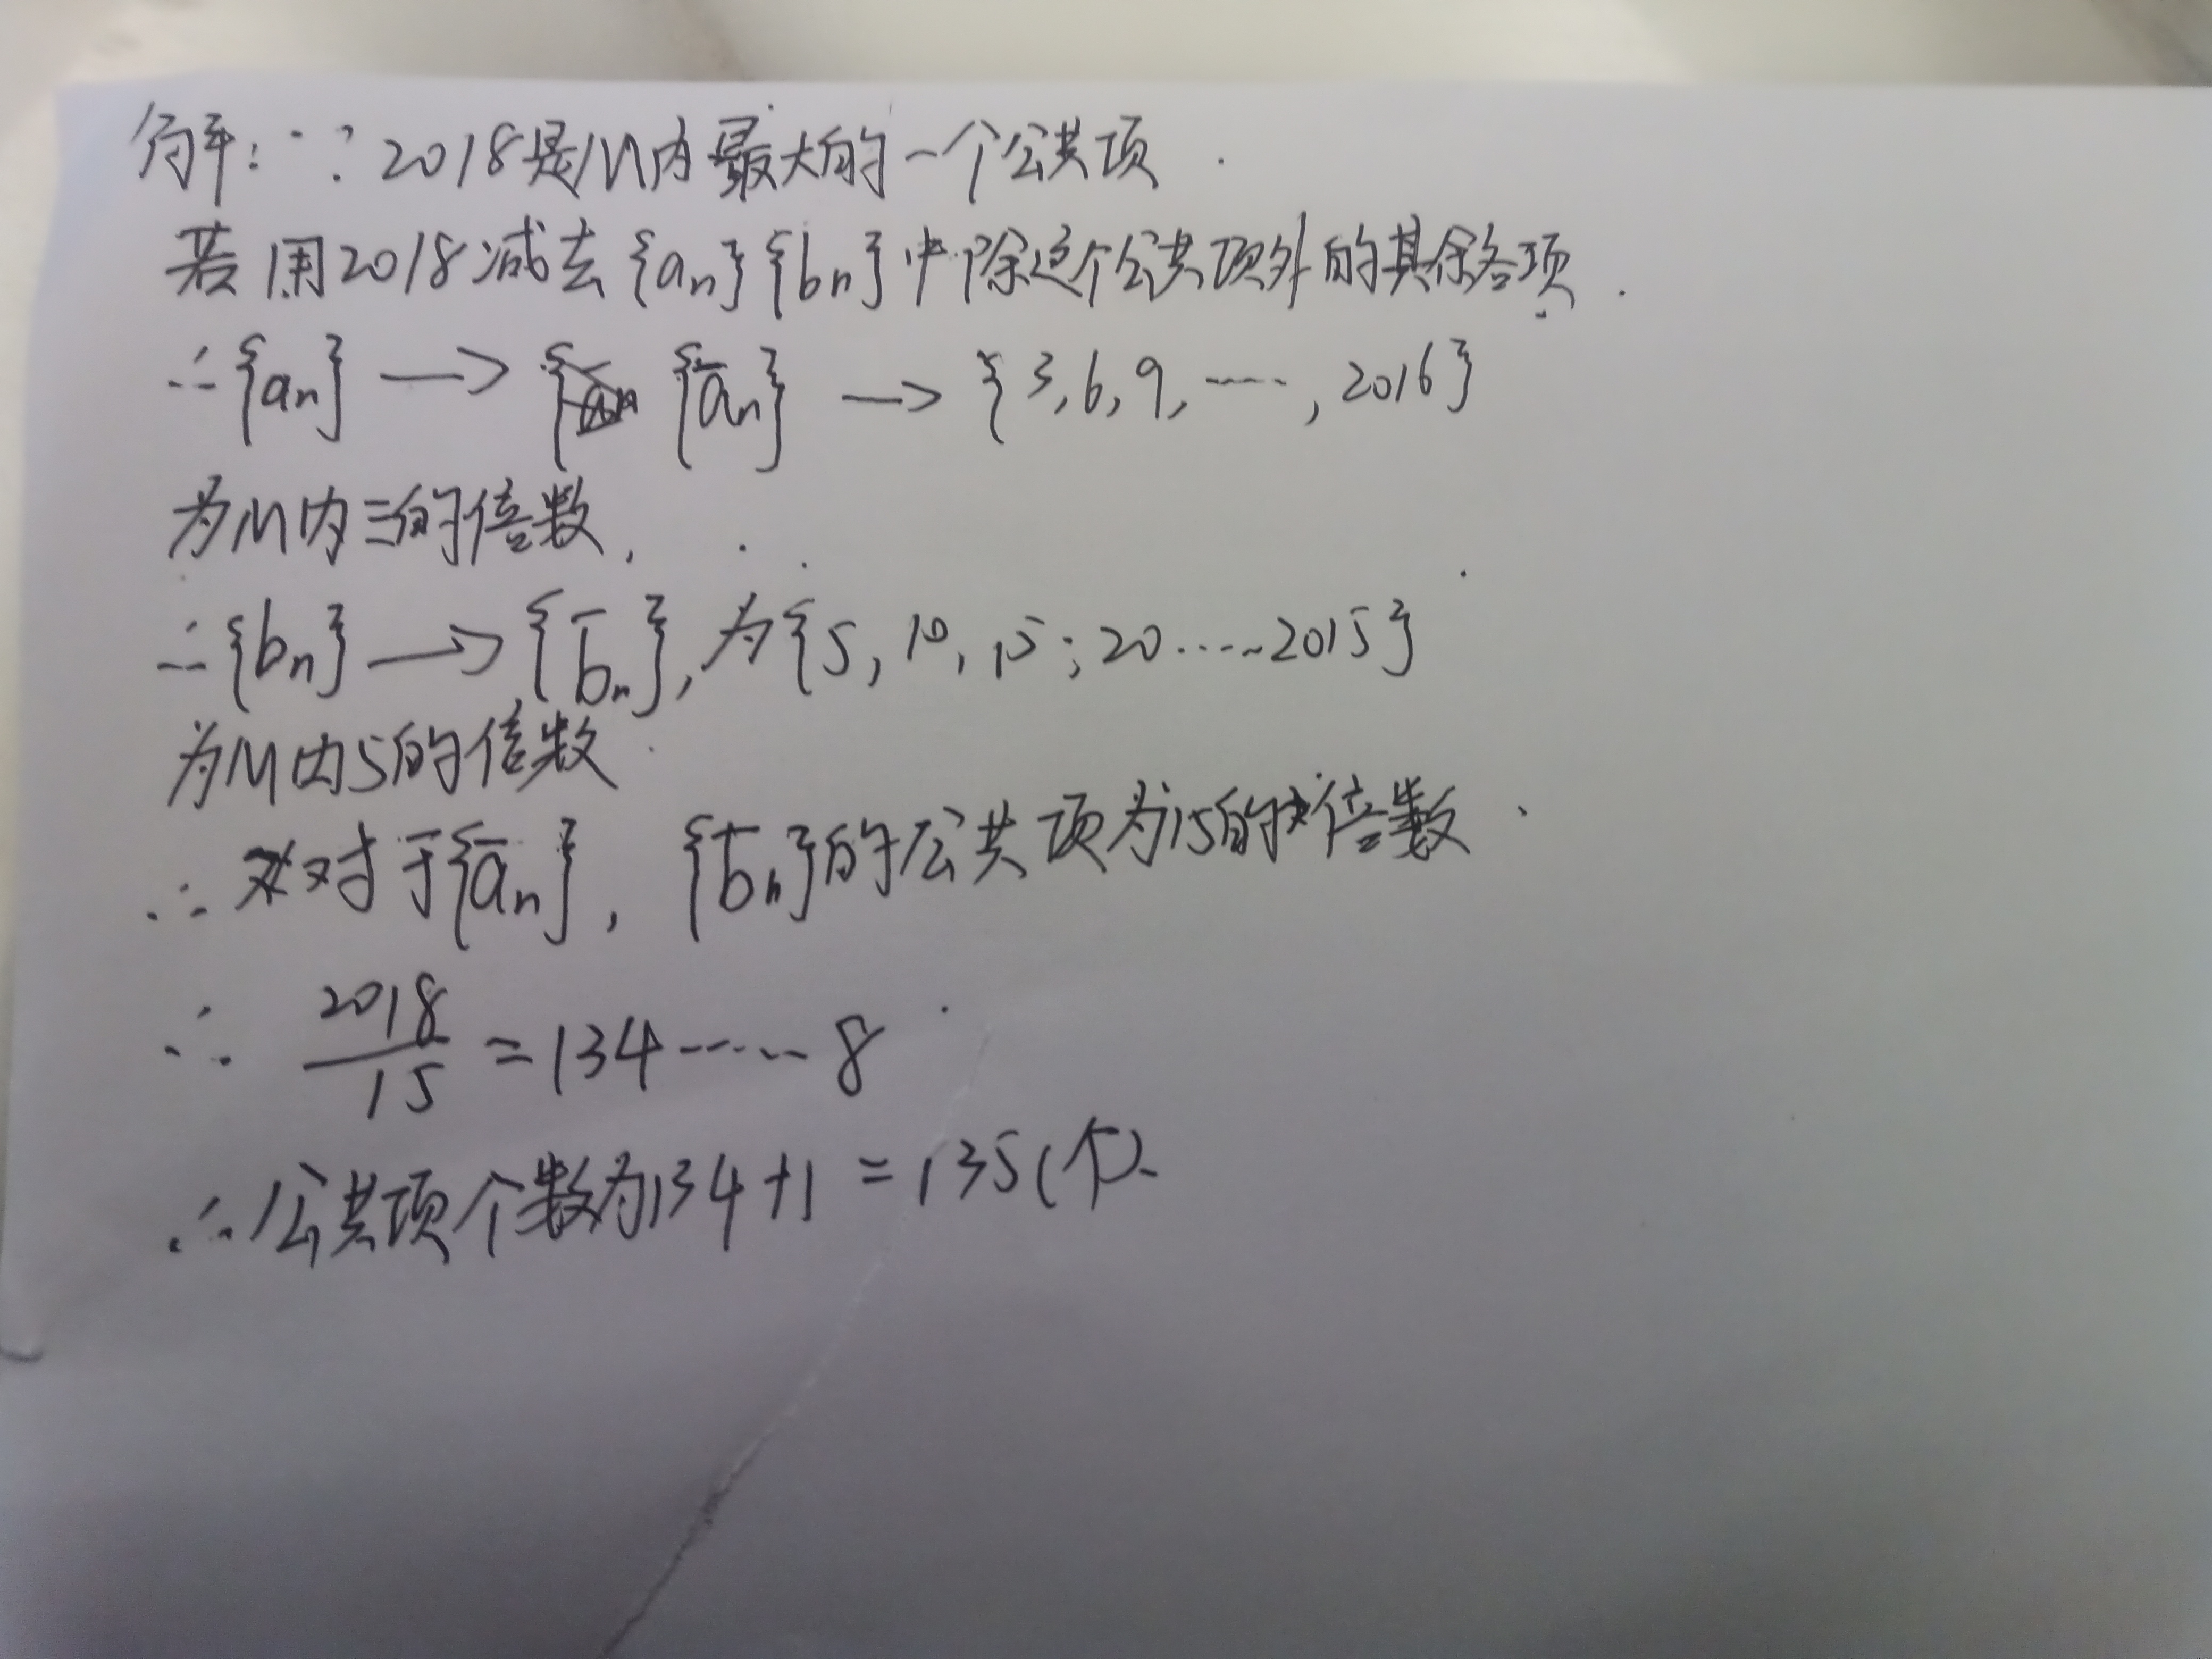 解:∵2018是M内最大的一个公共项.
若用2018减去{an}{bn}中除这个公共项外的其余各项.
∴{an}→{ān}→{3,6,9,……,2016}
为M内三的倍数,
∴{bn}→{b̄n},为{5,10,15;20……2015}
为M内5的倍数
∴对于{ān},{b̄n}的公共项为15的倍数.
∴2018/15=134……8
∴公共项个数为134+1=135(个).